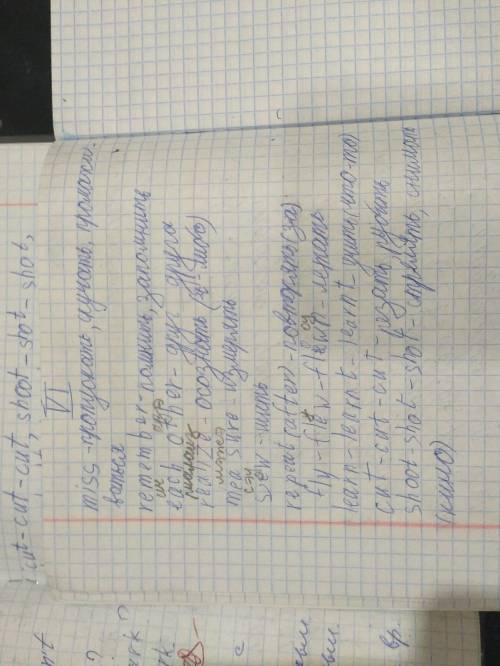 cut-cut-cut, shoot-shot-shot,
VI
miss - пропускать, скучать, промахи-
ваться
remember - помнить, запомнить
each other - друг друга
realize - осознать
measure - измерять
sew - шить
repeat (after) - повторять (за)
fly - flew - flown - летать
learn - learnt - learnt учить (что-то)
cut - cut - cut - резать, рубить
shoot - shot - shot - стрелять, снимать
(кино)